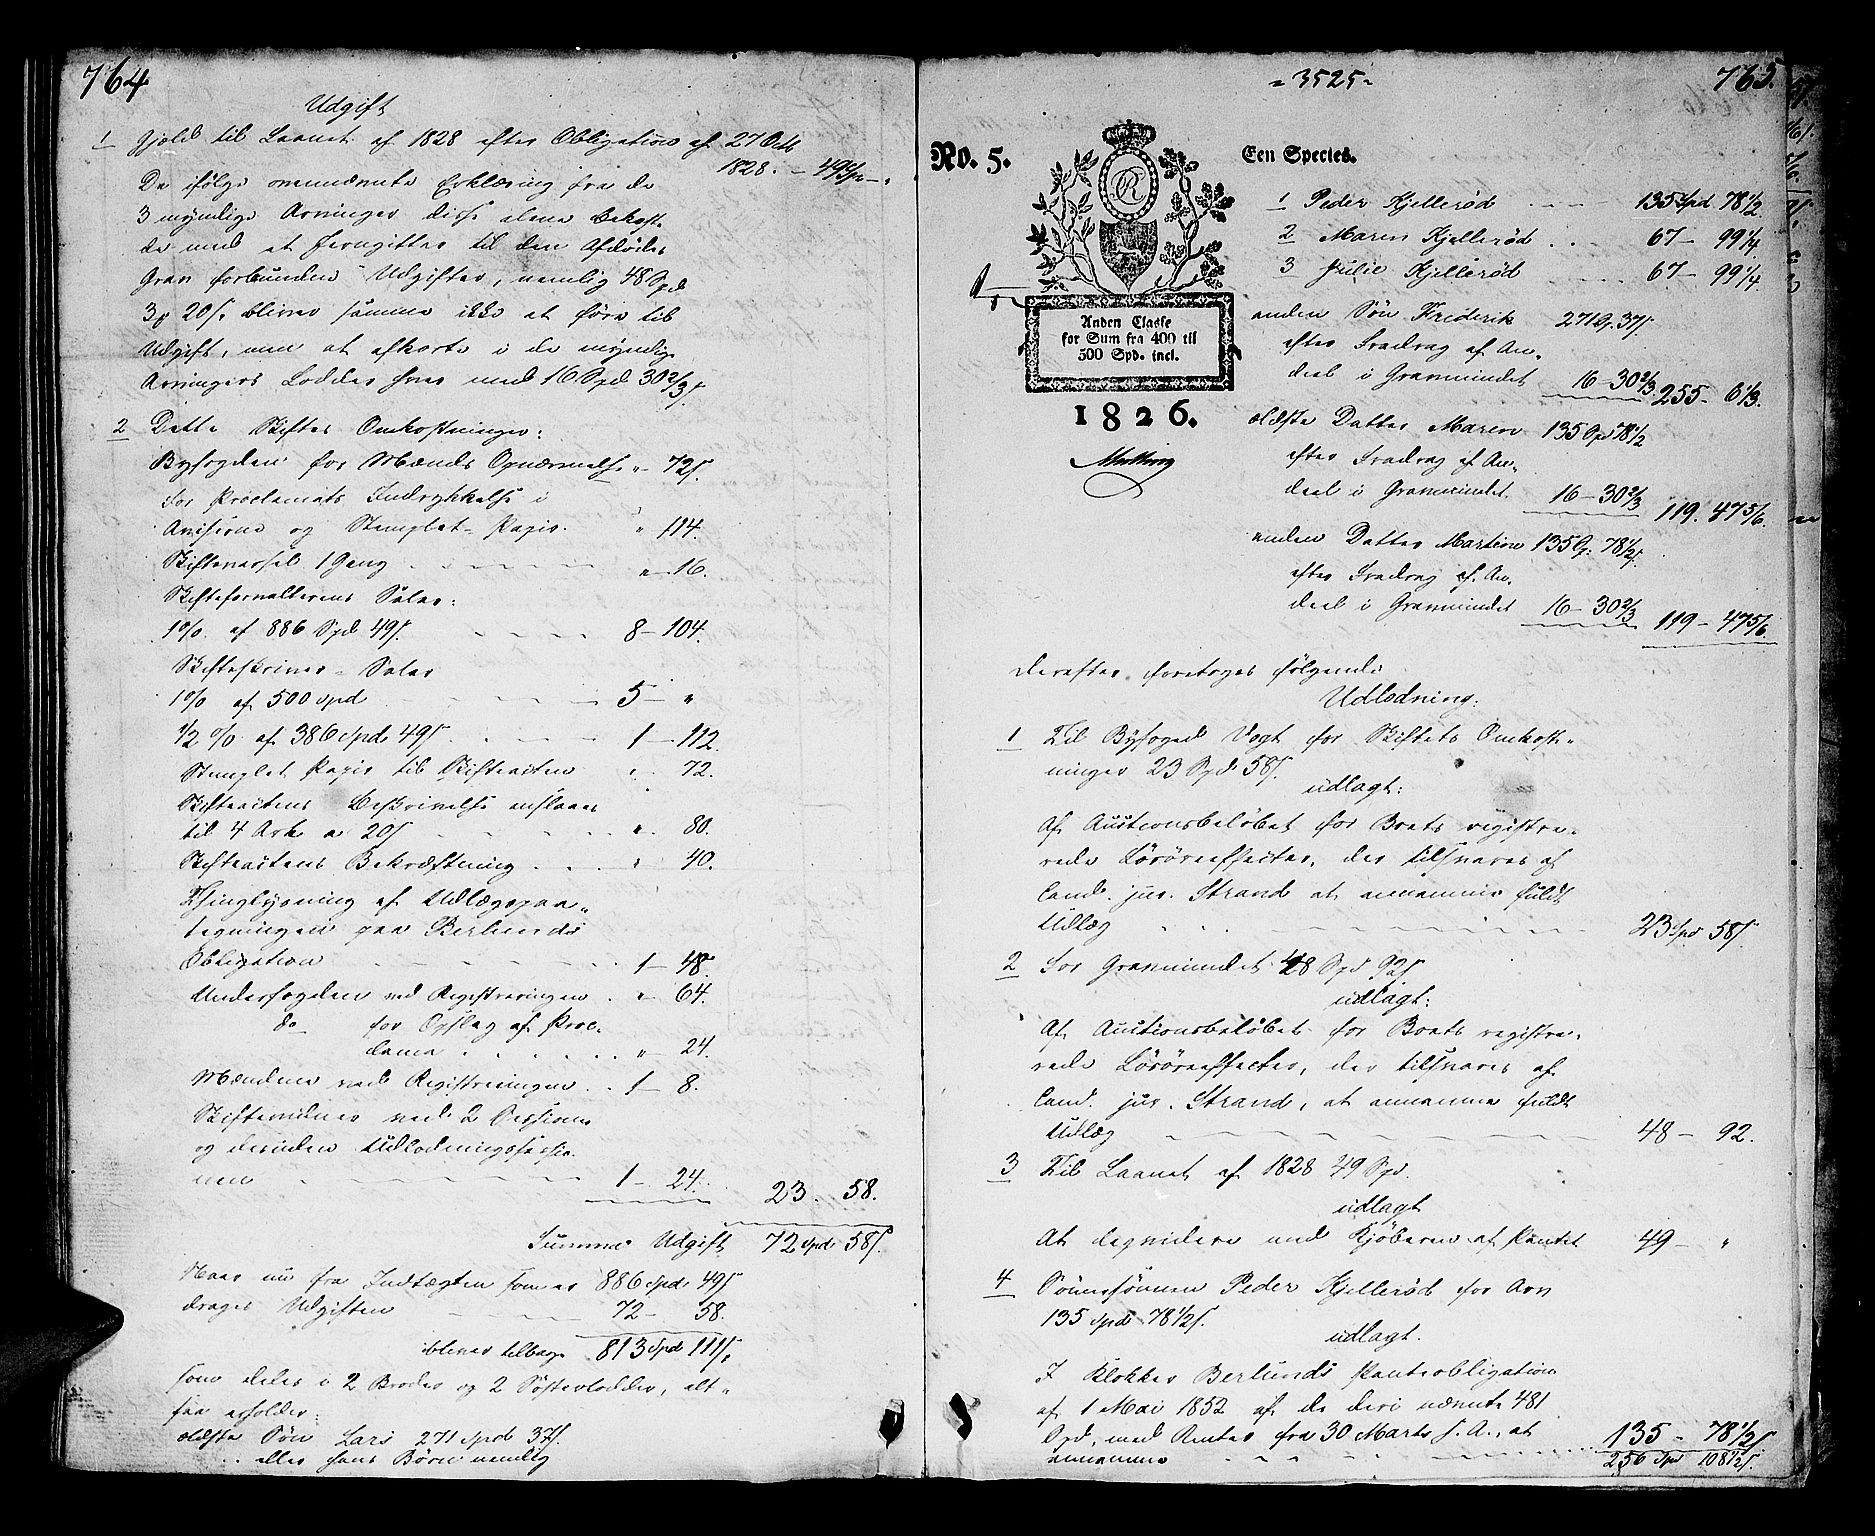 764
Udgift
1 Gjeld til Laanet af 1828 efter Obligation af 27 Octb
1828. - 49 Spd - "
Da ifølge ovennævnte Erklæring fra de
3 myndige Arvinger disse alene bekoste
de med et Jerngitter til den Afdødes
Grav forbundne Udgifter, nemlig 48 Spd
3 20 s. bliver samme ikke at føre til
Udgift, men at afkorte i de myndige
Arvingers Lodder hver med 16 Spd 30 2/3 s.
2 Dette Skiftes Omkostninger:
Byfogden for Mænds Opnævnelse " - 72 s.
For Proclamats Indrykkelse i
Aviserne og Stemplet Papir. " 114.
Skiftevarsel 1 Gang " - 16.
Skifteforvalterens Salar:
1 % af 886 Spd 49 s. 8 - 104.
Skifteskriver-Salar
1 % af 500 Spd 5 - "
1/2 % af 386 Spd 49 s. 1 - 112.
Stemplet Papir til Skifteacten " 72.
Skifteactens Beskrivelse anslaaes
til 4 Ark a 20 s " 80.
Skifteactens Bekræftning " 40.
Thinglysning af Udlægspaa-
tegningen paa Berlunds
Obligation 1 - 48.
Underfogden ved Registreringen " - 64.
do for Opslag af Proc-
lama " - 24.
Mændene ved Registreringen 1 - 8.
Skiftevidner ved 2 Sessioner
og desuden Udlodningssessio-
nen 1 - 24. 23. 58.
Summa Udgift 72 Spd 58 s.
Naar nu fra Indtægten som er 886 Spd 49 s
drages Udgiften 72 - 58.
bliver tilbage 813 Spd 111 s.
som deles i 2 Broder og 2 Søsterlodder, alt-
saa erholder:
ældste Søn Lars 271 Spd 37 s.
eller hans Børn nemlig
- 3525 -
765.
No. 5.
Een Species.
Anden Classe
for Sum fra 400 til
500 Spd. incl.
1826.
1 Peder Kjellerød 135 Spd 78 1/2
2 Maren Kjellerød 67 - 99 1/4
3 Julie Kjellerød 67 - 99 1/4
anden Søn Frederik 271 Spd. 37 s.
efter Fradrag af An-
deel i Gravmindet 16 - 30 2/3 255 - 6 1/3.
ældste Datter Maren 135 Spd 78 1/2
efter Fradrag af An-
deel i Gravmindet. 16 - 30 2/3 119. 47 5/6.
anden Datter Martine 135 Sp. 78 1/2 s.
efter Fradrag af An-
deel i Gravmindet 16 - 30 2/3 119 - 47 5/6
Derefter foretoges følgende
Udlodning:
1 Til Byfoged Vogt for Skiftets Omkost-
ninger 23 Spd 58 s.
udlagt:
Af Auctionsbeløbet for Boets registre-
rede Løsøreeffecter, der tilsvares af
Cand. jur. Strand at annamme fuldt
Udlæg 23 Spd 58 s.
2 For Gravmindet 48 Spd 92 s
udlagt:
Af Auctionsbeløbet for Boets registre-
rede Løsøreeffecter, der tilsvares af
Cand. jur. Strand, at annamme fuldt
Udlæg 48 - 92.
3 Til Laanet af 1828 49 Spd.
udlagt
At liqvidere med Kjøberen af Pantet 49 - "
4 Sønnesønnen Peder Kjellerød for Arv
135 Spd 78 1/2 s.
udlagt.
I Klokker Berlunds Pantobligation
af 1 Mai 1852 af de deri nævnte 481
Spd, med Renter fra 30 Marts s. A., at
annamme 135 - 78 1/2 s
256 Spd 108 1/2 s.